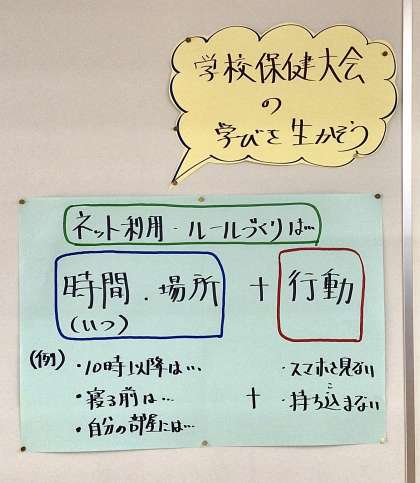 学校保健大会
の
学びを生かそう
ネット利用・ルールづくりは…
時間・場所 + 行動
(いつ)
(例)・10時以降は… ・スマホを見ない
・寝る前は… + ・持ち込まない
・自分の部屋には…